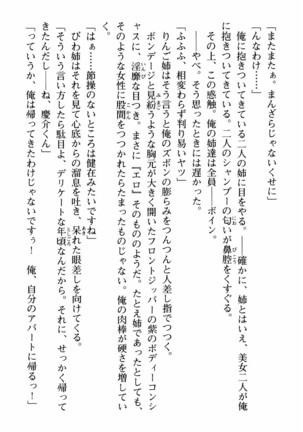 「またまたぁ。まんざらじゃないくせに」
「んなわけ……」
俺に抱きついてきている二人の姉に目をやる。――確かに、姉とはいえ、美女二人が俺
に抱きついてきている。二人のシャンプーの匂いが鼻腔をくすぐる。
その上、この感触。俺の姉達は全員――ボイン。
――やべ。そう思ったときには遅かった。
「ふふふ、相変わらず判り易いヤツ」
りんご姉はそう言うと俺のズボンの膨らみをつんつんと人差し指でつつく。
ボンデージと見紛うような胸元が大きく開いたフロントジッパーの紫のボディーコンシ
ャスに、淫靡な目つき。まさに『エロ』そのもののようだ。たとえ姉であったとしても、
そのような女性に股間をつつかれたらたまったものじゃない。俺の肉棒が硬さを増してい
く。
「はぁ……節操のないところは健在みたいですね」
びわ姉はそれを見て心底からの溜息を吐き、呆れた眼差しを向けてくる。
「そういう言い方したら駄目よ、デリケートな年頃なんだから。それに、せっかく帰って
きたんだし――ね、慶介くん」
「っていうか、俺は帰ってきたわけじゃないですぅ！　俺、自分のアパートに帰るっ！」